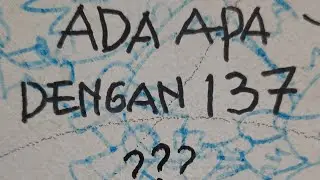 ADA APA
DENGAN 137
???